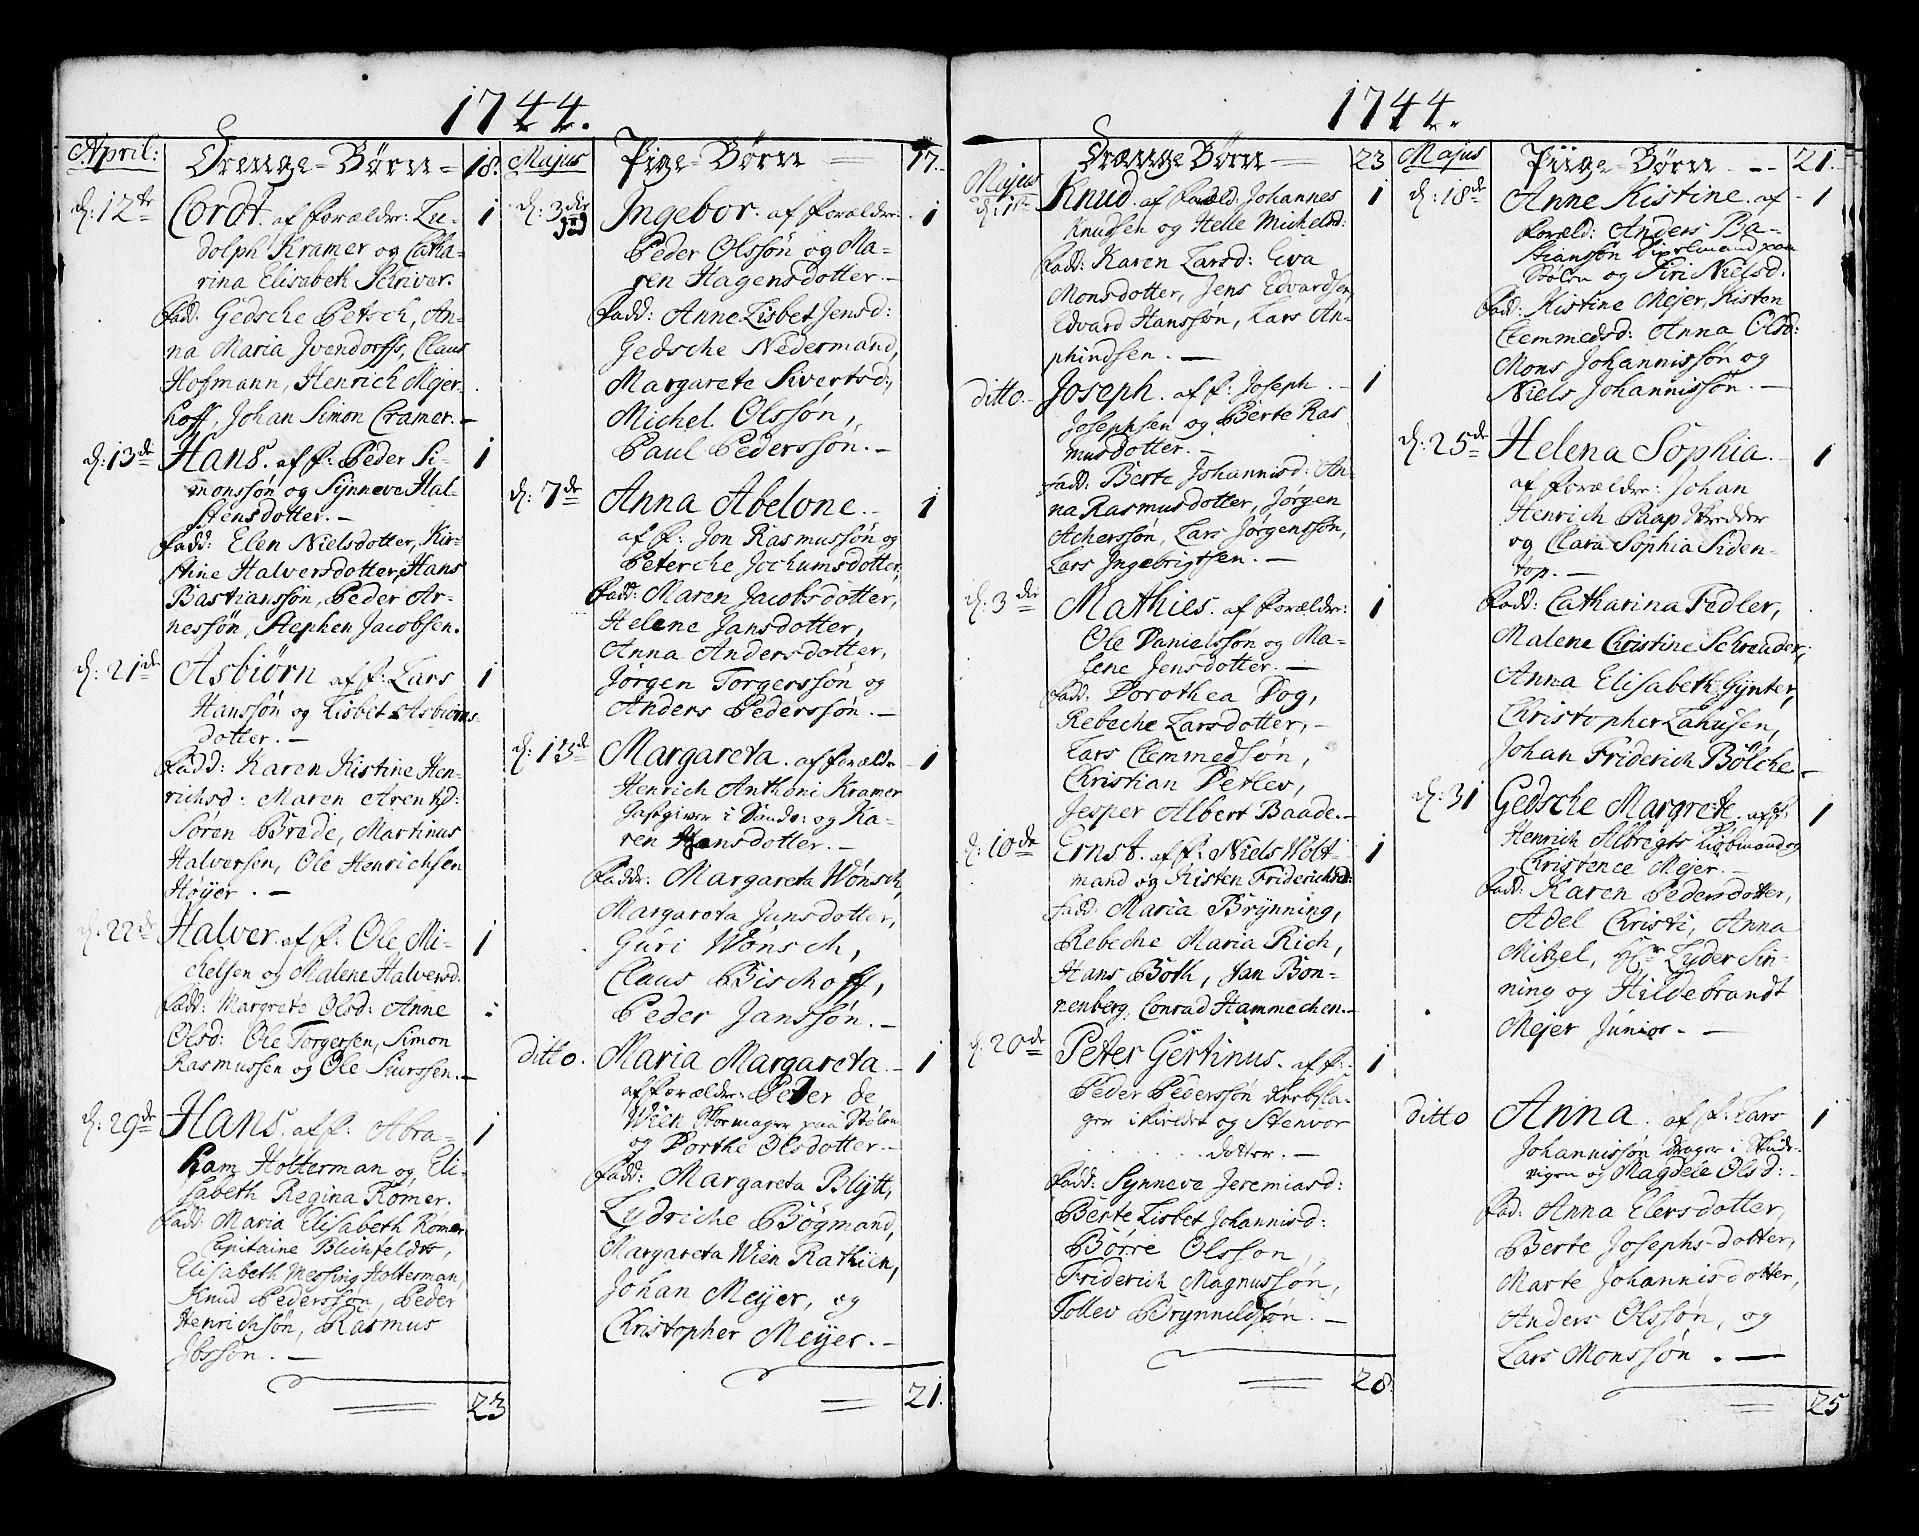 1744.
April:
Drenge-Børn-
18.
d: 12te
Cordt. af forældr: Lu-
1
dolph Kramer og Catha-
rina Elisabeth Schriver.
Fadd: Gedsche Petsch, An-
na Maria Ivendorffs, Claus
Hofmann, Henrich Mejer-
hoff, Johan Simon Cramer. —
d: 13de
Hans. af f: Peder Si-
1
monssøn og Synneve Hal-
stensdotter. —
Fadd: Elen Nielsdotter, Kir-
stine Halversdotter, Hans
Bastianssøn, Peder Ar-
nessøn, Stephen Jacobsen.
d: 21de
Asbiørn af f: Lars
1
Hanssøn og Lisbet Asbiørns-
dotter. —
Fadd: Karen Kistine Hen-
richsd: Maren Arentzd:
Søren Brede, Martinus
Halversen, Ole Henrichsen
Høyer. —
d: 22de
Halver. af f: Ole Mi-
1
chelsen og Malene Halversd.
Fadd: Margrete Olsd: Anne
Olsd: Ole Torgersen, Simon
Rasmussen og Ole Siurssen. —
d: 29de
Hans. af f: Abra-
1
ham Holterman og Eli-
sabeth Regina Rømer.
Fadd: Maria Elisabeth Rømer
Capitaine Blichfeldts,
Elisabeth Messing Holterman,
Knud Pederssøn, Peder
Henrichsøn, Rasmus
Ibssøn. —
23
Majus
Pige-Børn
17.
d: 3die
Ingebor. af forældr:
1
Peder Olssøn og Ma-
ren Hagensdotter —
Fadd: Anne Lisbet Jensd:
Gedsche Nedermand,
Margarete Sivertsd:,
Michel Olssøn,
Paul Pederssøn. —
d: 7de
Anna Abelone. —
1
af f: Jon Rasmussøn og
Peterche Jochumsdotter,
Fadd: Maren Jacobsdotter,
Helene Jansdotter,
Anna Andersdotter,
Jørgen Torgerssøn og
Anders Pederssøn. —
d: 15de
Margareta. af forældr
1
Henrich Anthoni Kramer
Gastgiver i Sands: og Ka-
ren Hansdotter. —
Faddr: Margareta Wønsch,
Margareta Jansdotter,
Guri Wønsch,
Claus Bischoff,
Peder Janssøn. —
ditto.
Maria Margareta. —
1
af forældr: Peter de
Wien Skomager paa Stølen
og Dorthe Olsdotter —
Fadd: Margareta Blÿtt,
Lydriche Bøgmand,
Margareta Wien Rathien,
Johan Meÿer, og
Christopher Meÿer. —
21.
1744.
Majus
Drænge Børn —
23
d: 1te
Knud af Foræld: Johannes
1
Knudsen og Helle Michelsd:
Fadd: Karen Larsd: Eva
Monsdotter, Jens Edvardsen,
Edvard Hanssøn, Lars An-
phindsen. —
ditto.
Joseph. af f: Joseph
1
Josephsen og Berte Ras
musdotter. —
Fadd: Berte Johannisd: An-
na Rasmusdotter, Jørgen
Acherssøn, Lars Jørgenssøn,
Lars Ingebrigtsen. —
d: 3die
Mathies. af forældr:
1
Ole Danielssøn og Ma-
lene Jensdotter. —
Fadd: Dorothea Dog,
Rebeche Larsdotter, —
Lars Clemmedsøn,
Christian Detlev,
Jesper Albert Baade. —
d: 10de
Ernst. af f: Niels Wolt-
1
mand og Kisten Friderichsd:
Fadd: Maria Brynning,
Rebeche Maria Rich,
Hans Both, Jan Bon-
nenberg, Conrad Hammechen. —
d: 20de
Peter Gertinus. af f:
1
Peder Pederssøn Rebsla-
ger i Kirelet og Stenvor
dotter. —
Fadd: Synneve Jeremiasd:
Berte Lisbet Johannisd:
Børre Olsson,
Friderich Magnussøn,
Tollev Brynnildsøn. —
28.
Majus
Piige-Børn
21.
d: 18de
Anne Kistine. af
1
Foræld: Anders Ba-
stianssøn Diçelmand paa
Stølen og Siri Nielsd.
Fad: Kistine Mejer, Kisten
Clemmedsd: Anna Olsd:
Mons Johannissøn og
Niels Johannissøn. —
d: 25de
Helena Sophia.
1
af forældr: Johan
Henrich Paap Skredder
og Clara Sophia Siden-
top. —
Fadd: Catharina Fedler,
Malene Christine Schreuder,
Anna Elisabeth Gynter,
Christopher Lahusen,
Johan Friderich Bølche —
d: 31
Gedsche Margrete. af f.
1
Henrich Albregts Kiøbmand og
Christence Mejer. —
Fadd: Karen Pedersdotter,
Adel Christi, Anna
Mitzel, Hr Lyder Sin-
ning og Hildebrandt
Mejer Junior. —
ditto
Anna. af f: Lars
1
Johannissøn Drager i Skuds-
vigen og Magdele Olsd: —
Fad: Anna Elersdotter,
Berte Josephs-dotter,
Marte Johannisdotter,
Anders Olssøn, og
Lars Monssøn. —
25